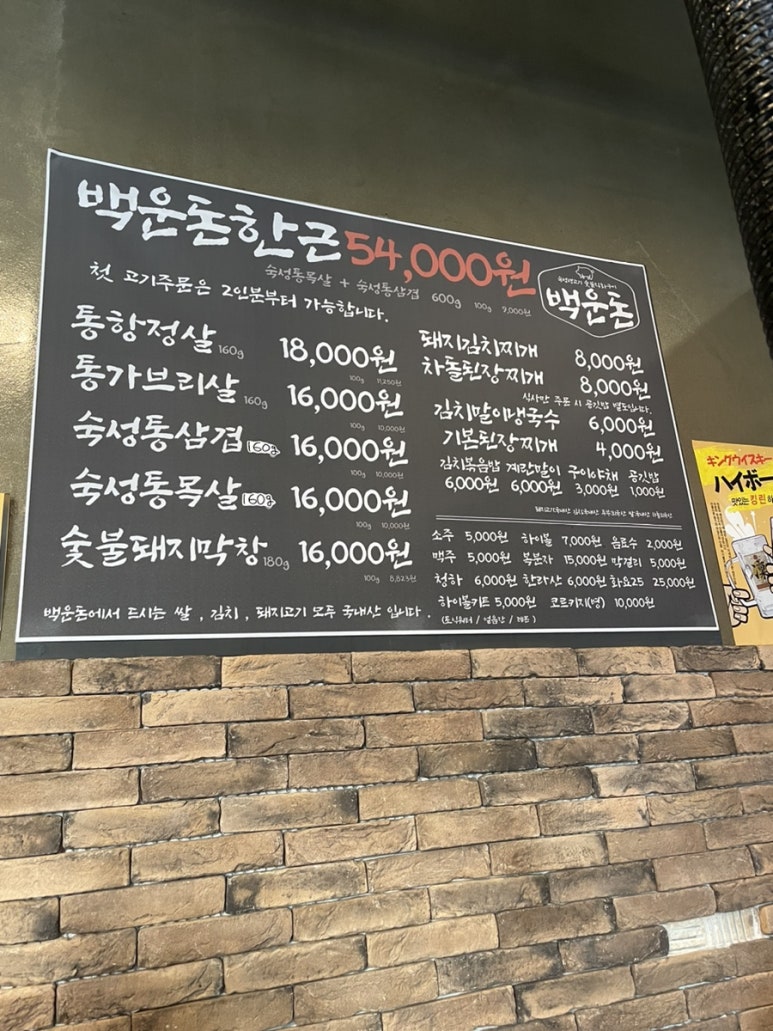 백운돈한근 54,000원
숙성통목살 + 숙성통삼겹 600g 100g 9,000원
첫 고기주문은 2인분부터 가능합니다.
백운돈
통항정살 160g 18,000원
100g 11,250원
통가브리살 160g 16,000원
100g 10,000원
숙성통삼겹 160g 16,000원
100g 10,000원
숙성통목살 160g 16,000원
100g 10,000원
숯불돼지막창 180g 16,000원
100g 8,823원
백운돈에서 드시는 쌀, 김치, 돼지고기 모두 국내산 입니다.
돼지김치찌개 8,000원
차돌된장찌개 8,000원
식사만 주문 시 공깃밥 별도입니다.
김치말이냉국수 6,000원
기본된장찌개 4,000원
김치볶음밥 계란말이 구이야채 공깃밥
6,000원 6,000원 3,000원 1,000원
소주 5,000원 하이볼 7,000원 음료수 2,000원
맥주 5,000원 복분자 15,000원 막걸리 5,000원
청하 6,000원 한라산 6,000원 화요25 25,000원
하이볼키트 5,000원 코르키지(병) 10,000원
(토닉워터 / 얼음잔 / 레몬)
キングウイスキー
ハイボー
맛있는 킹린 하